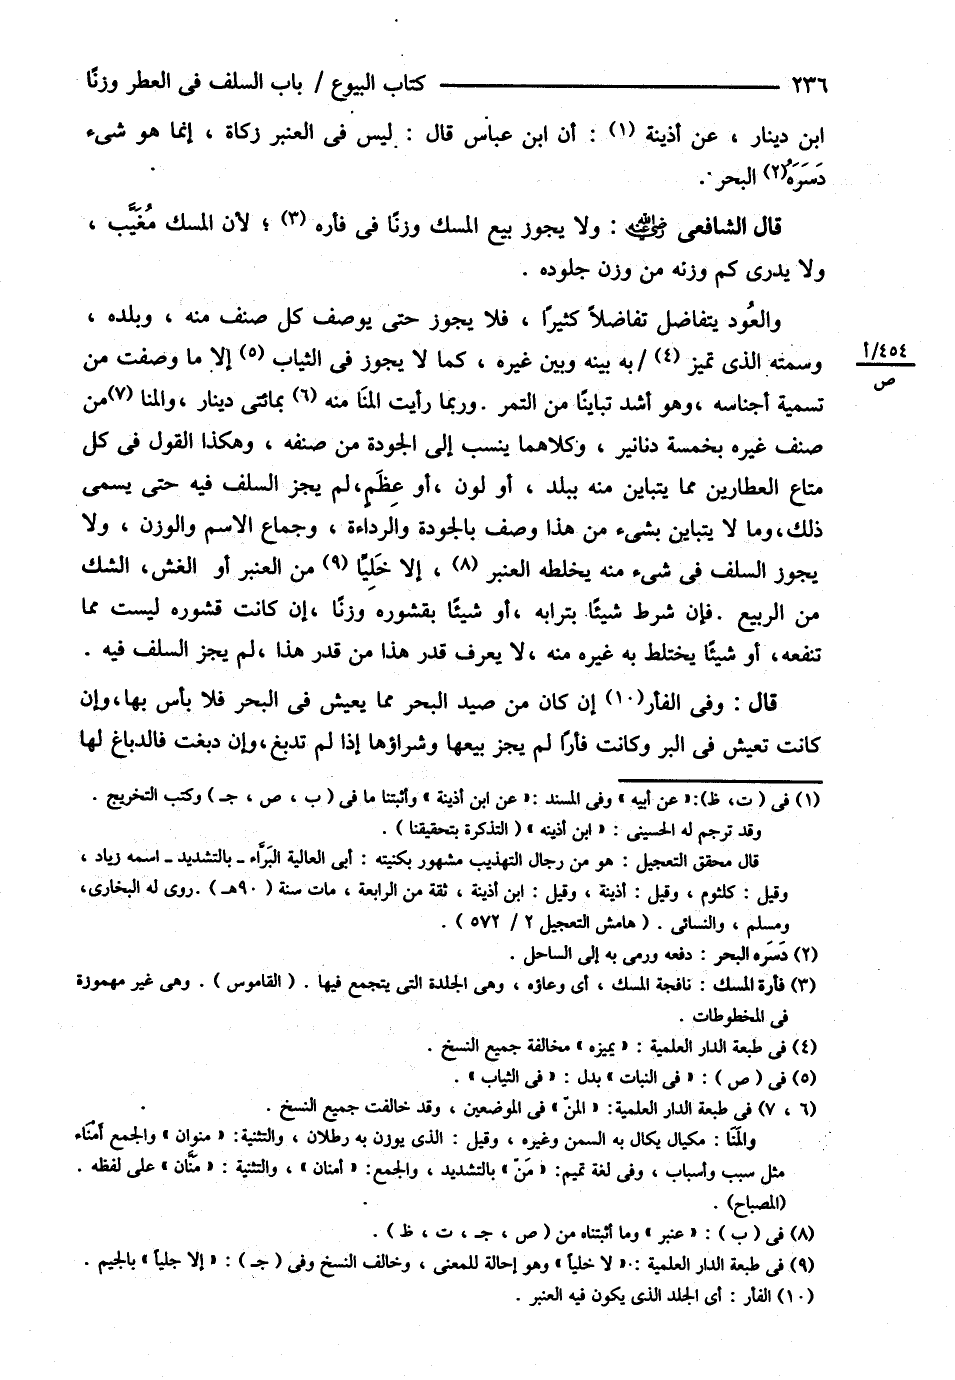 ٢٣٦ ــــــــــ كتاب البيوع / باب السلف فى العطر وزنًا
ابن دينار ، عن أذينة (١) : أن ابن عباس قال : ليس فى العنبر زكاة ، إنما هو شىء
دَسَرَهُ(٢) البحر .
قال الشافعى رضي الله عنه : ولا يجوز بيع المسك وزنًا فى فأره (٣) ؛ لأن المسك مُغَيَّب ،
ولا يدرى كم وزنه من وزن جلوده .
والعُود يتفاضل تفاضلاً كثيرًا ، فلا يجوز حتى يوصف كل صنف منه ، وبلده ،
وسمته الذى تميز (٤) / به بينه وبين غيره ، كما لا يجوز فى الثياب (٥) إلا ما وصفت من
٤٥٤/أ
ص
تسمية أجناسه ،وهو أشد تباينًا من التمر .وربما رأيت المنَا منه (٦) بمائتى دينار ،والمنا (٧)من
صنف غيره بخمسة دنانير ، وكلاهما ينسب إلى الجودة من صنفه ، وهكذا القول فى كل
متاع العطارين مما يتباين منه ببلد ، أو لون ،أو عِظَمٍ،لم يجز السلف فيه حتى يسمى
ذلك،وما لا يتباين بشىء من هذا وصف بالجودة والرداءة ، وجماع الاسم والوزن ، ولا
يجوز السلف فى شىء منه يخلطه العنبر (٨) ، إلا خَلِيًا (٩) من العنبر أو الغش، الشك
من الربيع .فإن شرط شيئًا بترابه ،أو شيئًا بقشوره وزنًا ،إن كانت قشوره ليست مما
تنفعه، أو شيئًا يختلط به غيره منه ،لا يعرف قدر هذا من قدر هذا ،لم يجز السلف فيه .
قال : وفى الفأر(١٠) إن كان من صيد البحر مما يعيش فى البحر فلا بأس بها،وإن
كانت تعيش فى البر وكانت فأرًا لم يجز بيعها وشراؤها إذا لم تدبغ،وإن دبغت فالدباغ لها
(١) فى ( ت، ظ):« عن أبيه » وفى المسند :« عن ابن أذينة » وأثبتنا ما فى ( ب ، ص ، جـ ) وكتب التخريج .
وقد ترجم له الحسينى : « ابن أذينه » ( التذكرة بتحقيقنا ) .
قال محقق التعجيل : هو من رجال التهذيب مشهور بكنيته : أبى العالية البَرَّاء ـ بالتشديد ـ اسمه زياد ،
وقيل : كلثوم ، وقيل : أذينة ، وقيل : ابن أذينة ، ثقة من الرابعة ، مات سنة ( ٩٠هـ ) .روى له البخارى،
ومسلم ، والنسائى . ( هامش التعجيل ٢ / ٥٧٢ ) .
(٢) دَسَره البحر : دفعه ورمى به إلى الساحل .
(٣) فأرة المسك : نافجة المسك ، أى وعاؤه ، وهى الجلدة التى يتجمع فيها . ( القاموس ) . وهى غير مهموزة
فى المخطوطات .
(٤) فى طبعة الدار العلمية : « يميزه » مخالفة جميع النسخ .
(٥) فى ( ص ) : « فى النبات » بدل : « فى الثياب » .
(٦ ، ٧) فى طبعة الدار العلمية: « المنّ » فى الموضعين ، وقد خالفت جميع النسخ .
والمَنَا : مكيال يكال به السمن وغيره ، وقيل : الذى يوزن به رطلان ، والتثنية: « منوان » والجمع أمْنَاء
مثل سبب وأسباب ، وفى لغة تميم: « مَنّ » بالتشديد ، والجمع: « أمنان » ، والتثنية : « مَنَّان » على لفظه .
(المصباح) .
(٨) فى ( ب ) : « عنبر » وما أثبتناه من ( ص ، جـ ، ت ، ظ ) .
(٩) فى طبعة الدار العلمية :« لا خلياً » وهو إحالة للمعنى ، وخالف النسخ وفى ( جـ ) : « إلا جلياً » بالجيم .
(١٠) الفأر : أى الجلد الذى يكون فيه العنبر .